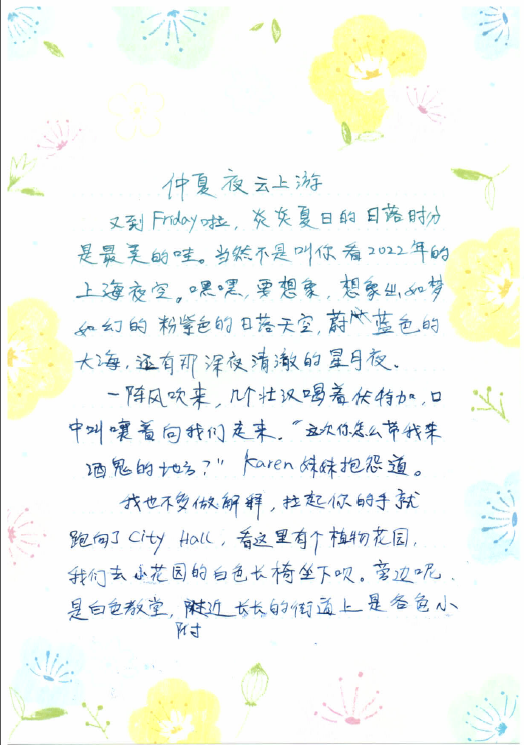 仲夏夜云上游
又到Friday啦，炎炎夏日的日落时分
是最美的哇。当然不是叫你看2022年的
上海夜空。嘿嘿，要想象，想象出如梦
如幻的粉紫色的日落天空，蔚蓝色的
大海，还有那深夜清澈的星月夜、
一阵风吹来，几个壮汉喝着伏特加，口
中叫嚷着向我们走来。“这次你怎么带我来
酒鬼的地方？”Karen妹妹抱怨道。
我也不多做解释，拉起你的手就
跑向了City Hall，看这里有个植物花园，
我们去小花园的白色长椅坐下呗。旁边呢、
是白色教堂，附近长长的街道上是各色小
附